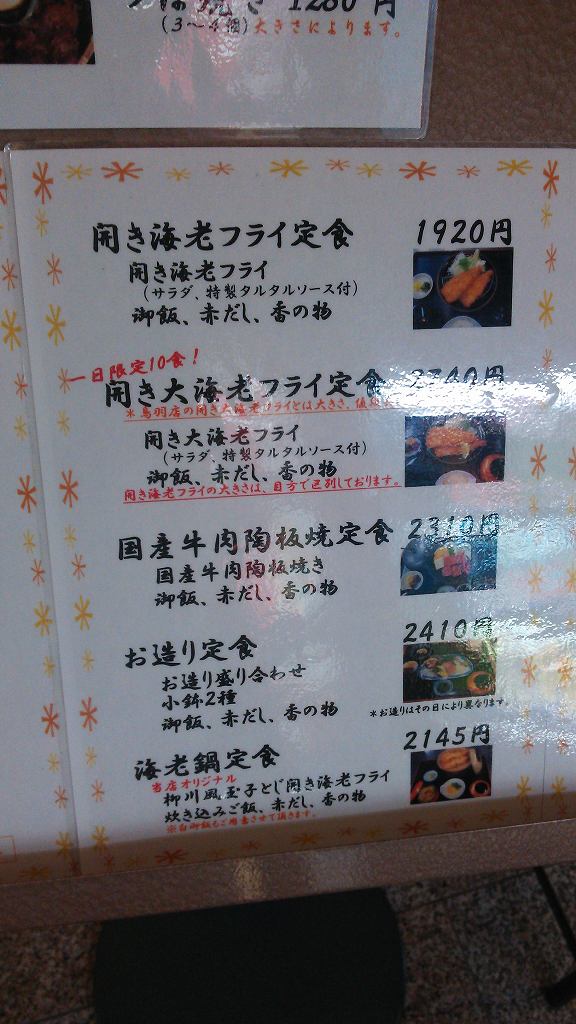 焼き 1280円
(3〜4個)大きさによります。
開き海老フライ定食 1920円
開き海老フライ
(サラダ、特製タルタルソース付)
御飯、赤だし、香の物
一日限定10食!
開き大海老フライ定食
*鳥羽店の開き大海老フライとは大きさ、値段
開き大海老フライ
(サラダ、特製タルタルソース付)
御飯、赤だし、香の物
開き海老フライの大きさは、目方で区別しております。
国産牛肉陶板焼定食 2310円
国産牛肉陶板焼き
御飯、赤だし、香の物
お造り定食 2410円
お造り盛り合わせ
小鉢2種
御飯、赤だし、香の物
*お造りはその日により異なります。
海老鍋定食 2145円
当店オリジナル
柳川風玉子とじ開き海老フライ
炊き込みご飯、赤だし、香の物
※白御飯もご用意させて頂きます。